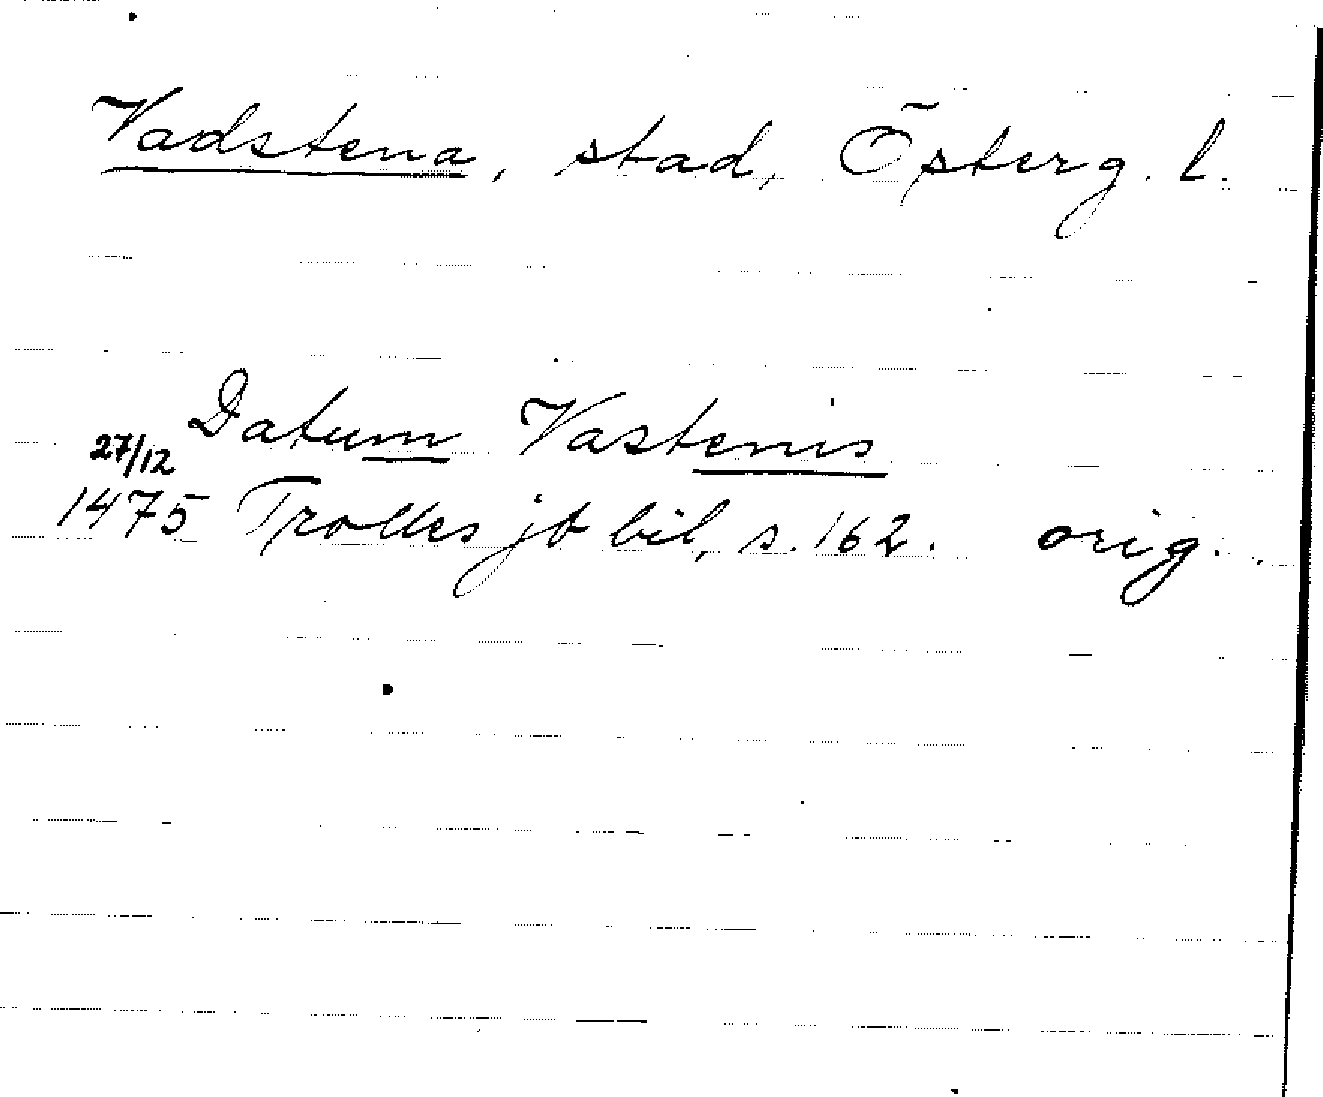 Vadstena, stad, Österg. l.
Datum Vastenis
27/12
1475 Trolles jb bil, s. 162. orig.